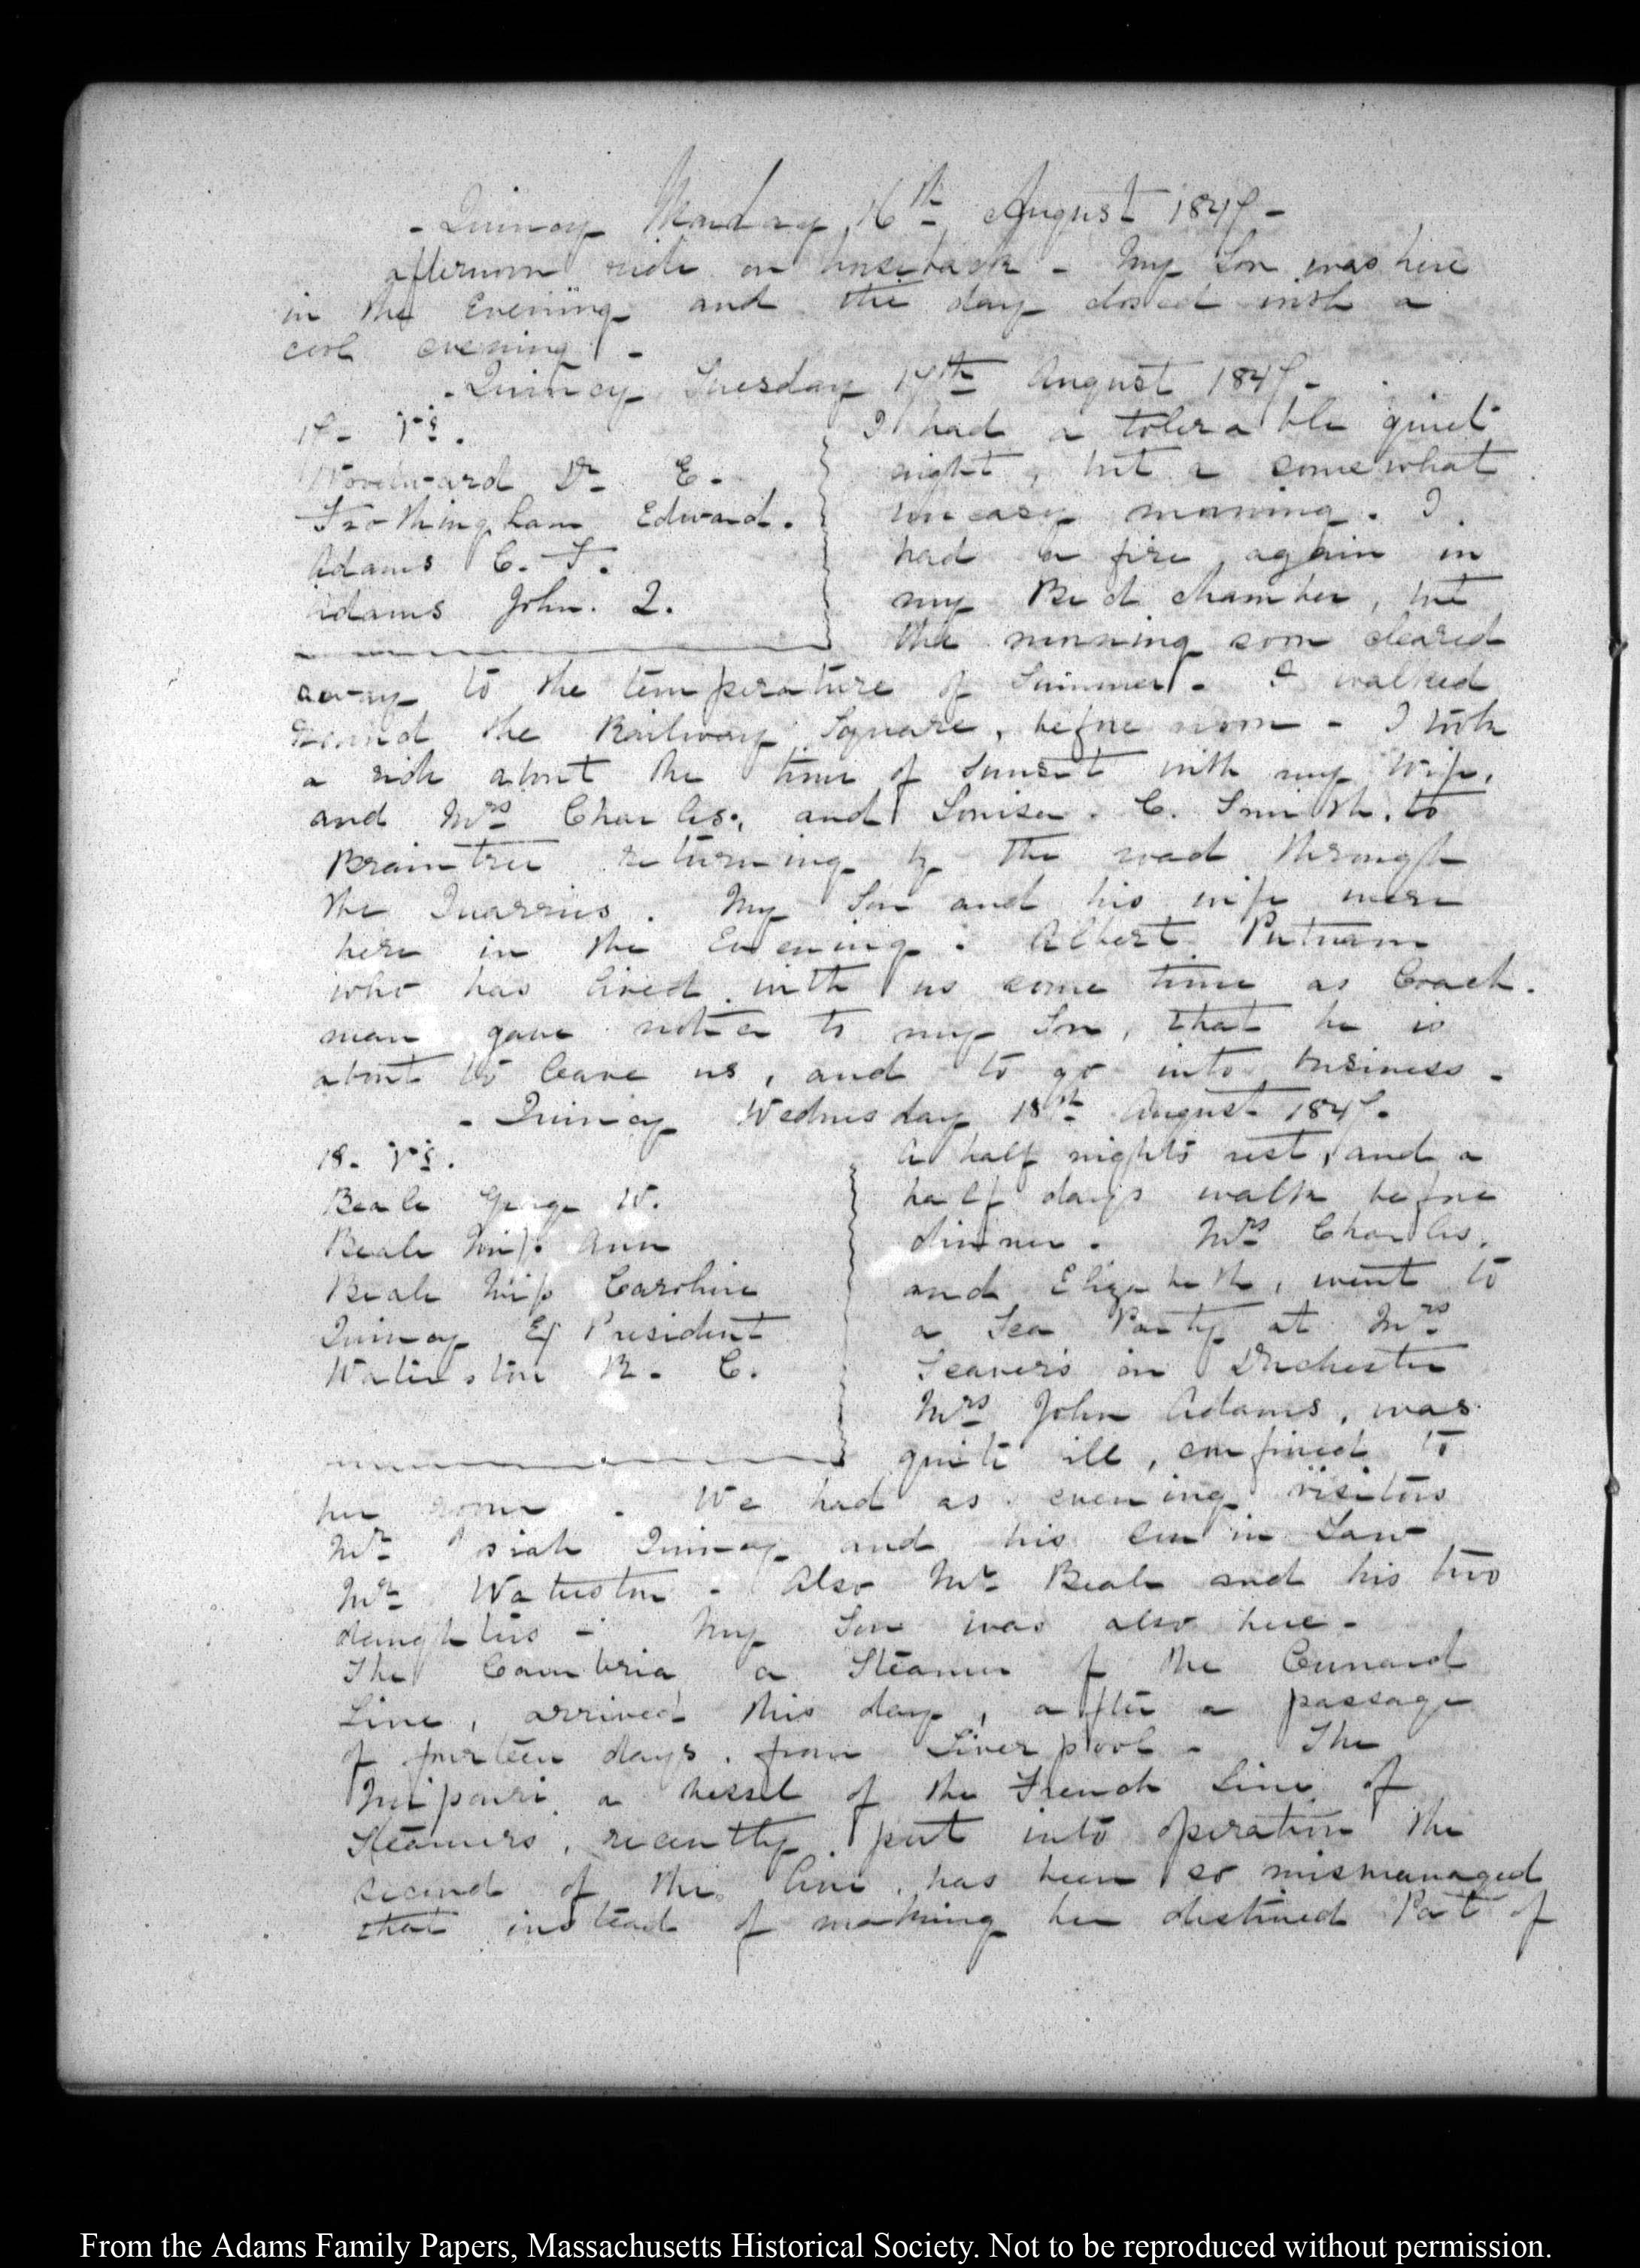 - Quincy Monday 16th August 1847 -
afternoon ride on horseback - My Son was here
in the Evening and the day closed with a
cool evening -
- Quincy Tuesday 17th August 1847 -
17- V.s.
Woodward Dr E.
Frothingham Edward.
Adams C. F.
Adams John. Q.
I had a tolerable quiet
night, but a somewhat
uneasy morning. I
had a fire again in
my Bed chamber, but
the morning soon cleared
away to the temperature of Summer. I walked
round the Railway Square, before noon - I took
a ride about the time of Sunset with my Wife,
and Mrs Charles, and Louisa. C. Smith. to
Braintree returning by the road through
the Quarries. My Son and his wife were
here in the Evening. Albert Putnam
who has lived with us some time as Coach-
man gave notice to my Son, that he is
about to leave us, and to go into business -
- Quincy Wednesday 18th August 1847.
18. V.s.
Beale George W.
Beale Miss Ann
Beale Miss Caroline
Quincy Ex President
Waterston R. C.
A half nights rest, and a
half days walk before
dinner. Mrs Charles.
and Elizabeth, went to
a Tea Party at Mrs
Seaver's in Dorchester
Mrs John Adams, was
quite ill, confined to
her room. We had as evening visitors
Mr Josiah Quincy and his Son in Law
Mr Waterston - Also Mr Beale and his two
daughters - My Son was also here -
The Cambria a Steamer of the Cunard
Line, arrived this day, after a passage
of fourteen days, from Liverpool - The
Missouri a vessel of the French Line of
Steamers, recently put into operation the
second of the line, has been so mismanaged
that instead of making her destined Port of
From the Adams Family Papers, Massachusetts Historical Society. Not to be reproduced without permission.